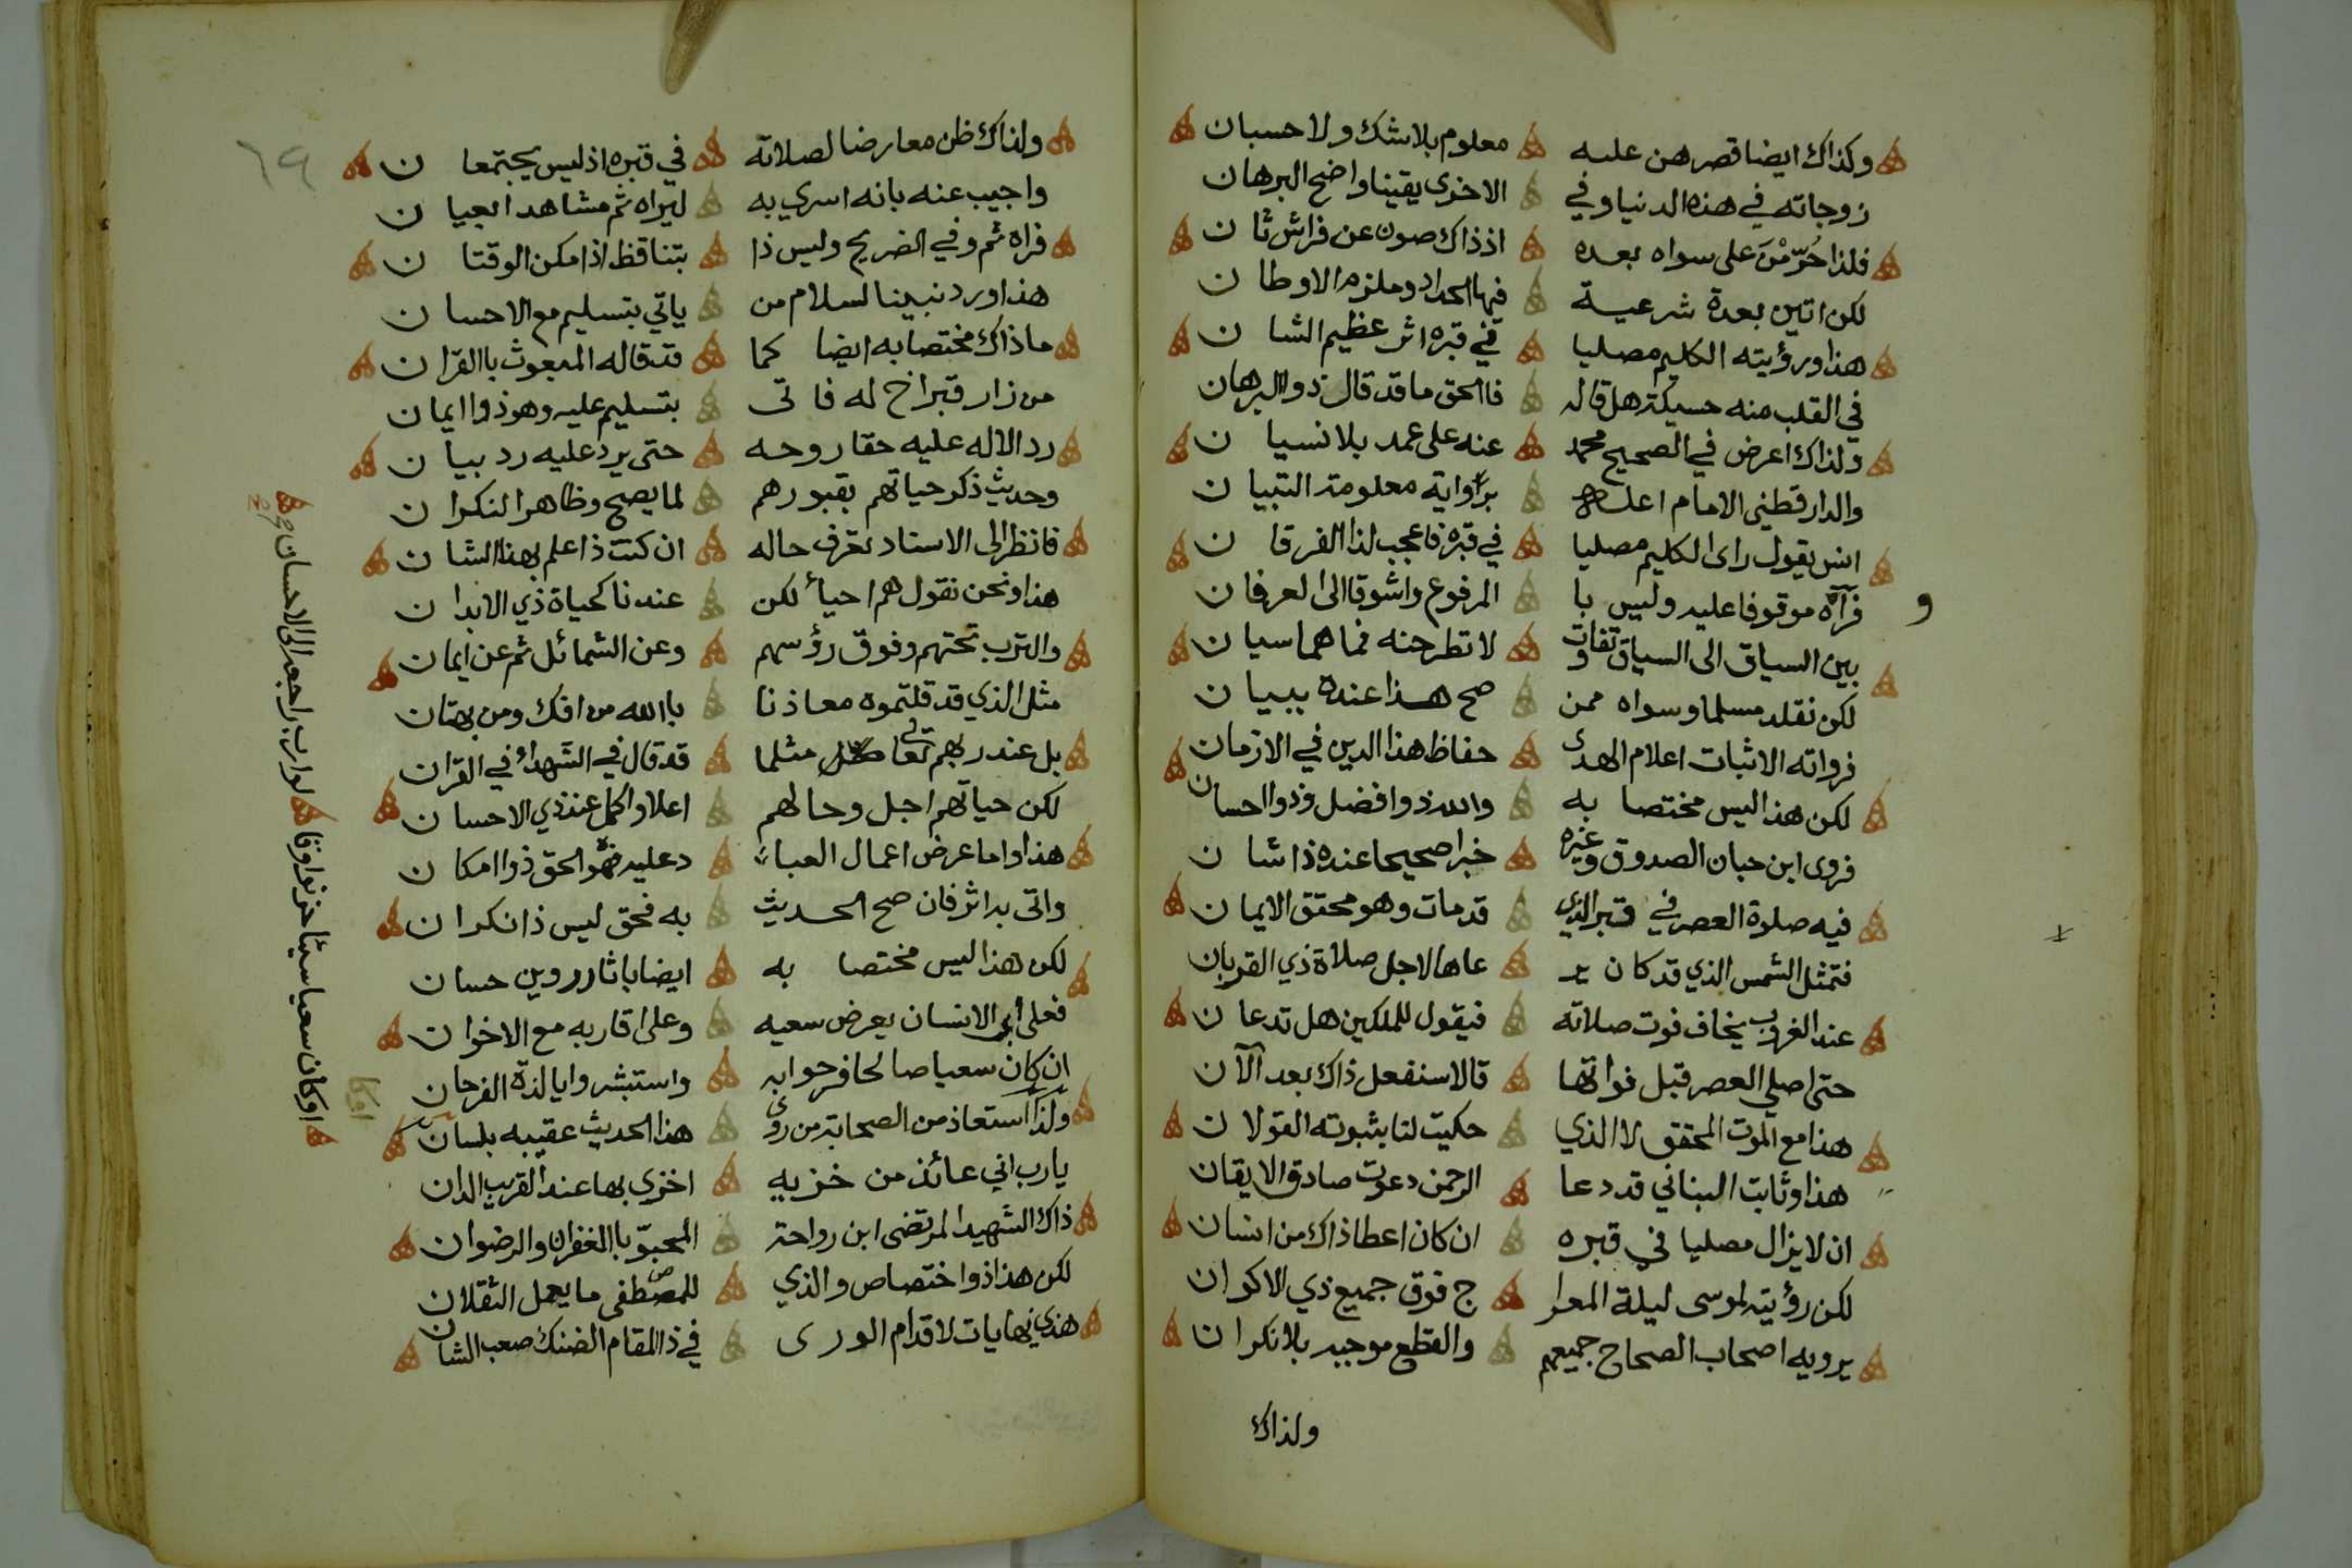 وكذاك ايضا قصرهن عليه معلوم بلا شك ولا حسبان
زوجاته في هذه الدنيا وفي الاخرى يقينا واضح البرهان
فلذا حُرّمْنَ على سواه بعده اذ ذاك صون عن فراش ثان
لكن اتين بعدة شرعية فيها الحداد وملزم الاوطان
هذا ورؤيته الكليم مصليا في قبره اثر عظيم الشان
في القلب منه حسيكة هل قاله فاالحق ما قد قال ذو البرهان
ولذاك اعرض في الصحيح محمد عنه على عمد بلا نسيان
والدارقطني الامام اعله برواية معلومة التبيان
انس يقول راى الكليم مصليا في قبره فاعجب لذا الفرقان
فرآه موقوفا عليه وليس با المرفوع واشوقا الى العرفان
و
بين السياق الى السياق تفاوت لا تطرحنه فما هما سيان
لكن نقلد مسلما وسواه ممن صح هذا عنده ببيان
فرواته الاثبات اعلام الهدى حفاظ هذا الدين في الازمان
لكن هذا ليس مختصا به والله ذوا فضل وذوا احسان
فروى ابن حبان الصدوق وغيره خبرا صحيحا عنده ذا شان
فيه صلوة العصر في قبر الذي قد مات وهو محقق الايمان
فتمثل الشمس الذي قد كان ير عاها لاجل صلاة ذي القربان
عند الغروب يخاف فوت صلاته فيقول للملكين هل تدعان
حتى اصلي العصر قبل فواتها قالا ستفعل ذاك بعد الآن
هذا مع الموت المحقق لا الذي حكيت لنا بثبوته القولان
هذا وثابت البناني قد دعا الرحمن دعوت صادق الايقان
ان لا يزال مصليا في قبره ان كان اعطا ذاك من انسان
لكن رؤيته لموسى ليلة المعرا ج فوق جميع ذي الاكوان
يرويه اصحاب الصحاح جميعهم والقطع موجبه بلا نكران
ولذاك
٦٩
ولذاك ظن معارضا لصلاته في قبره اذ ليس يجتمعان
واجيب عنه بانه اسري به ليراه ثم مشاهدا بعيان
فراه ثم وفي الضريح وليس ذا بتناقظ اذ امكن الوقتان
هذا ورد نبينا لسلام من ياتي بتسليم مع الاحسان
ما ذاك مختصا به ايضا كما قد قاله المبعوث باالقران
من زار قبر اخ له فاتى بتسليم عليه وهو ذوا ايمان
رد الاله عليه حقا روحه حتى يرد عليه رد بيان
وحديث ذكر حياتهم بقبورهم لما يصح وظاهر النكران
فانظر الى الاسناد تعرف حاله ان كنت ذا علم بهذا الشان
هذا ونحن نقول هم احياء لكن عندنا كحياة ذي الابدان
والترب تحتهم وفوق رؤسهم وعن الشمائل ثم عن ايمان
مثل الذي قد قلتموه معاذنا باالله من افك ومن بهتان
بل عند ربهم تعالى مثلما قد قال في الشهداء في القران
لكن حياتهم اجل وحالهم اعلا واكمل عند ذي الاحسان
هذا واما عرض اعمال العبا د عليه فهو الحق ذوا امكان
واتى به اثر فان صح الحديث به فحق ليس ذا نكران
لكن هذا ليس مختصا به ايضا باثار روين حسان
فعلى ابي الانسان يعرض سعيه وعلى اقاربه مع الاخوان
ان كان سعيا صالحا فرحوا به واستبشروا يا لذة الفرحان
اوكان سعيا سيئا حزنوا وقا لوا رب راجعه الى الاحسان
ولذا استعاذ من الصحابة من روى هذا الحديث عقيبه بلسان
يا رب اني عائذ من خزية اخزى بها عند القريب الدان
ذاك الشهيد المرتضى ابن رواحة المحبوّ باالغفران والرضوان
لكن هذا ذوا اختصاص والذي للمصطفى ما يعمل الثقلان
هذي نهايات لاقدام الورى في ذا المقام الضنك صعب الشان